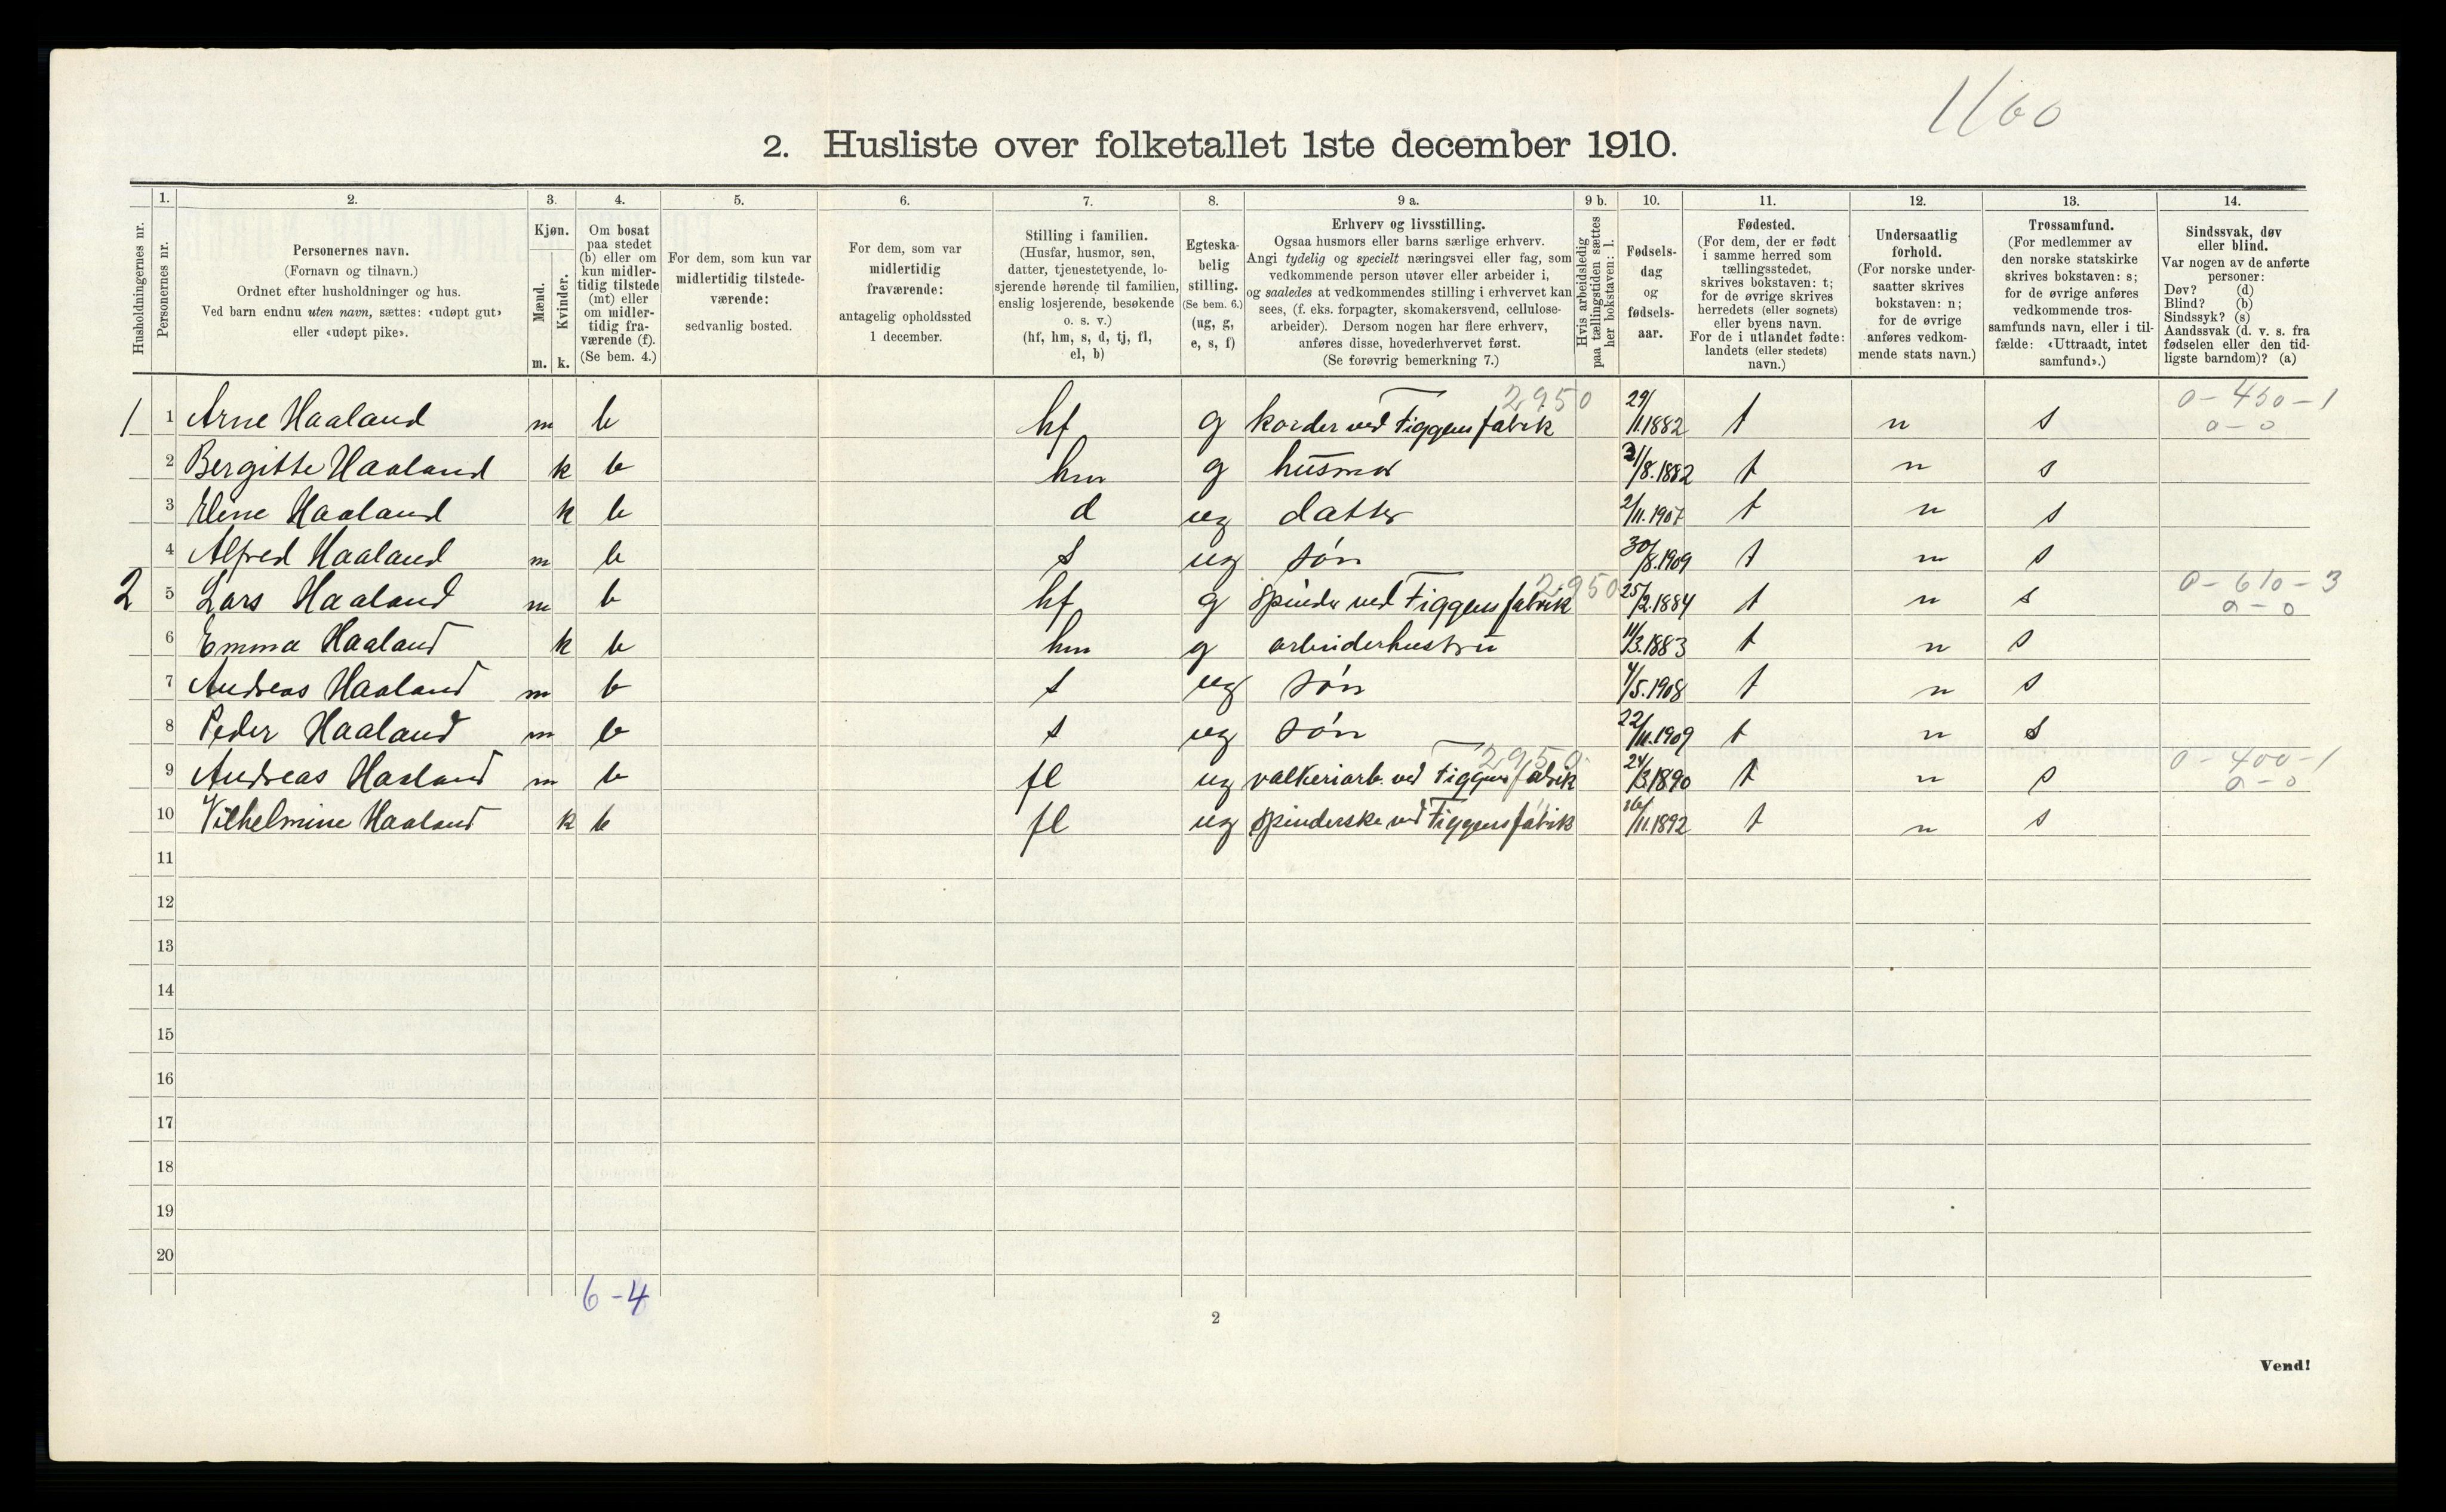 1/60
2. Husliste over folketallet 1ste december 1910.
Husholdningernes nr.
1.
Personernes nr.
2.
Personernes navn.
(Fornavn og tilnavn.)
Ordnet efter husholdninger og hus.
Ved barn endnu uten navn, sættes: «udøpt gut»
eller «udøpt pike».
3.
Kjøn.
Mænd.
Kvinder.
m. k.
4.
Om bosat
paa stedet
(b) eller om
kun midler-
tidig tilstede
(mt) eller
om midler-
tidig fra-
værende (f).
(Se bem. 4.)
5.
For dem, som kun var
midlertidig tilstede-
værende:
sedvanlig bosted.
6.
For dem, som var
midlertidig
fraværende:
antagelig opholdssted
1 december.
7.
Stilling i familien.
(Husfar, husmor, søn,
datter, tjenestetyende, lo-
sjerende hørende til familien,
enslig losjerende, besøkende
o. s. v.)
(hf, hm, s, d, tj, fl,
el, b)
8.
Egteska-
belig
stilling.
(Se bem. 6.)
(ug, g,
e, s, f)
9 a.
Erhverv og livsstilling.
Ogsaa husmors eller barns særlige erhverv.
Angi tydelig og specielt næringsvei eller fag, som
vedkommende person utøver eller arbeider i,
og saaledes at vedkommendes stilling i erhvervet kan
sees, (f. eks. forpagter, skomakersvend, cellulose-
arbeider). Dersom nogen har flere erhverv,
anføres disse, hovederhvervet først.
(Se forøvrig bemerkning 7.)
9 b.
Hvis arbeidsledig
paa tællingstiden sættes
her bokstaven: l.
10.
Fødsels-
dag
og
fødsels-
aar.
11.
Fødested.
(For dem, der er født
i samme herred som
tællingsstedet,
skrives bokstaven: t;
for de øvrige skrives
herredets (eller sognets)
eller byens navn.
For de i utlandet fødte:
landets (eller stedets)
navn.)
12.
Undersaatlig
forhold.
(For norske under-
saatter skrives
bokstaven: n;
for de øvrige
anføres vedkom-
mende stats navn.)
13.
Trossamfund.
(For medlemmer av
den norske statskirke
skrives bokstaven: s;
for de øvrige anføres
vedkommende tros-
samfunds navn, eller i til-
fælde: «Uttraadt, intet
samfund».)
14.
Sindssvak, døv
eller blind.
Var nogen av de anførte
personer:
Døv? (d)
Blind? (b)
Sindssyk? (s)
Aandssvak (d. v. s. fra
fødselen eller den tid-
ligste barndom)? (a)
1 1 Arne Haaland m b hf g korder ved Figgens fabrik 2950 29/11.1882 t n s 0-450-1
0-0
2 Bergitte Haaland k b hm g husmor /8.1882 t n s
3 Elene Haaland k b d ug datter 2/11.1907 t n s
4 Alfred Haaland m b s ug søn 30/8.1909 t n s
2 5 Lars Haaland m b hf g spinder ved Figgens fabrik 2950 25/2.1884 t n s 0-610-3
0-0
6 Emma Haaland k b hm g arbeiderhustru 11/3.1883 t n s
7 Andreas Haaland m b s ug søn /5.1908 t n s
8 Peder Haaland m b s ug søn 22/11.1909 t n s
9 Andreas Haaland m b fl ug valkeriarb. ved Figgens fabrik 2950 24/3.1890 t n s 0-400-1
0-0
10 Vilhelmine Haaland k b fl ug spinderske ved Figgens fabrik 16/11.1892 t n s
11
12
13
14
15
16
17
18
19
20
6-4
2
Vend!